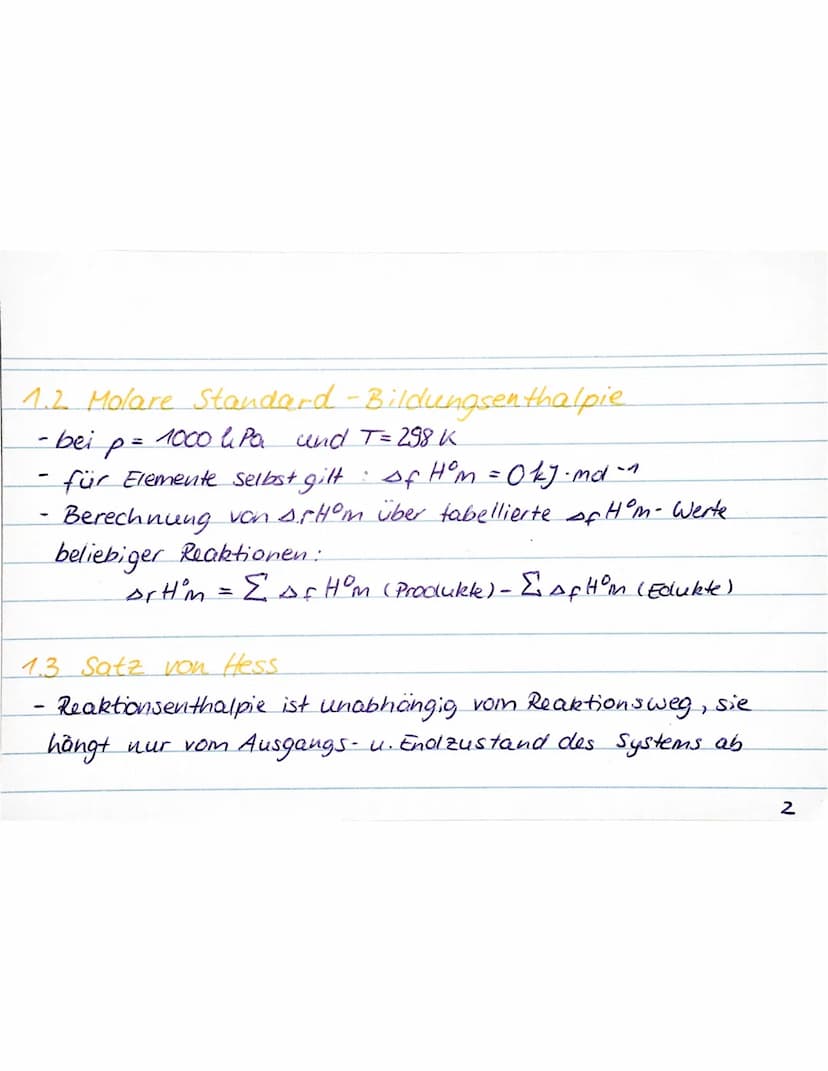 1.2 Molare Standard-Bildungsenthalpie
- bei p = 1000 hPa und T = 298 K
- für Elemente selbst gilt : ΔfH⁰m = 0 kJ·mol⁻¹
- Berechnung von ΔrH⁰m über tabellierte ΔfH⁰m-Werte
beliebiger Reaktionen:
ΔrH⁰m = Σ ΔfH⁰m (Produkte) - Σ ΔfH⁰m (Edukte)
1.3 Satz von Hess
- Reaktionsenthalpie ist unabhängig vom Reaktionsweg, sie
hängt nur vom Ausgangs- u. Endzustand des Systems ab
2